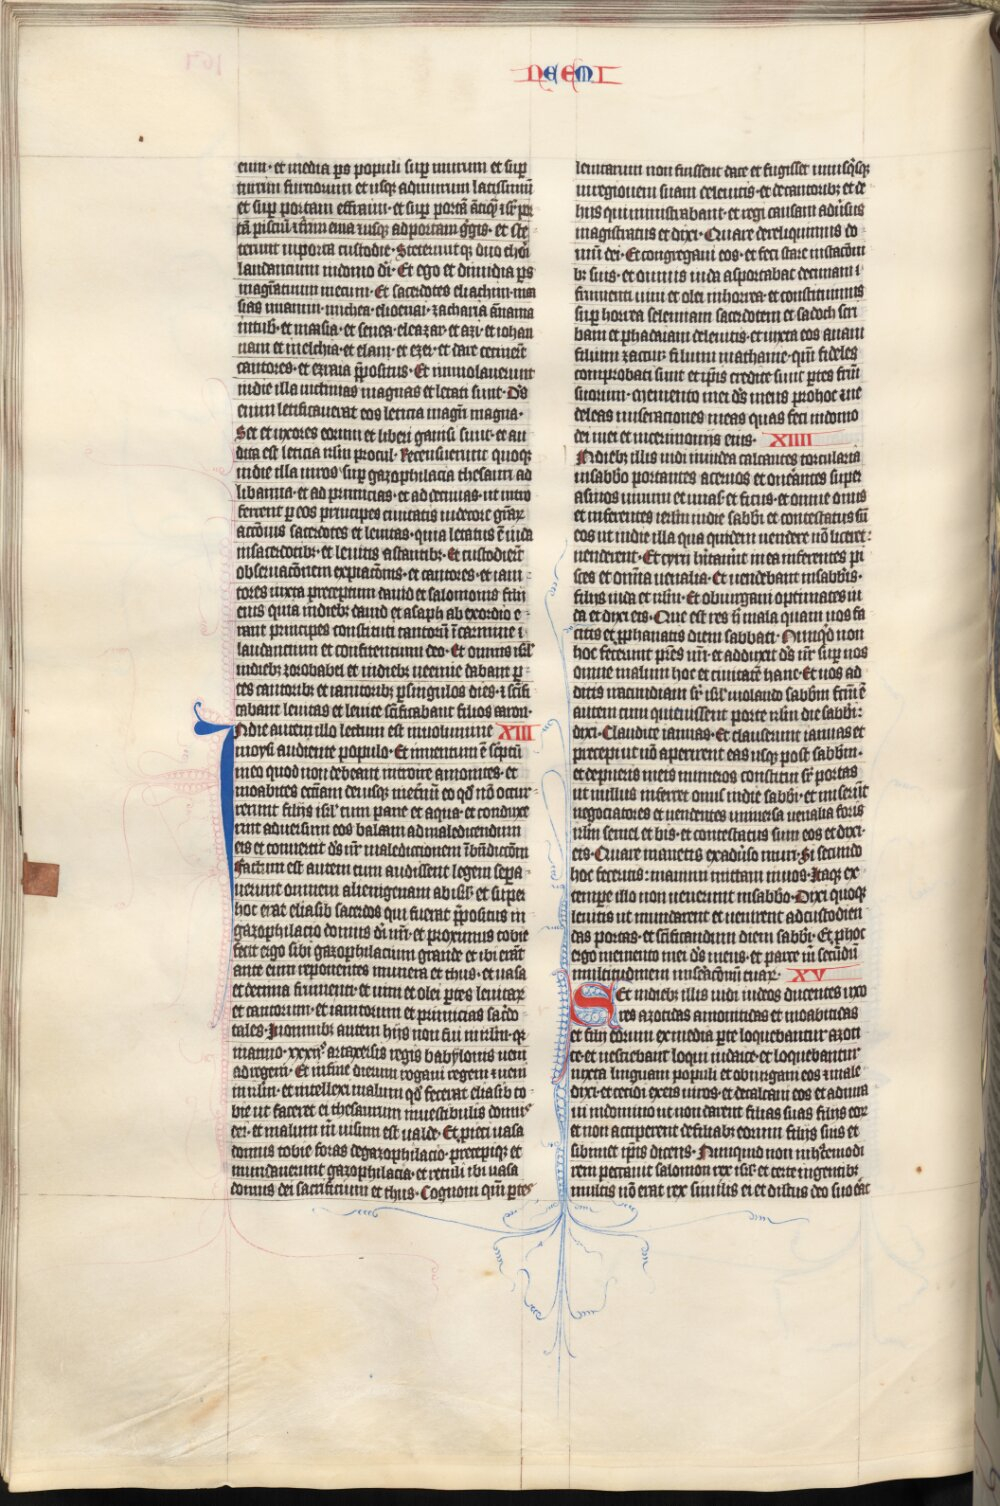 NEEMI
eum· et media ps populi sup murum et sup
turrim furnorum et usq; ad murum latissimū
et sup portam effraim· et sup portā ātiq̄ ⁊ sr̄ por
tā pisciū ⁊ turrim ema ⁊ usq; ad portam ḡgis· et ste
terunt in porta custodie· Steteruntq; duo chori
laudantium in domo dī· Et ego et dimidia ps
magr̄atuum mecum· Et sacerdotes eliachim· ma
sias miamin· michea· elioenai· zacharia ānama
in tub̄· et maasia· et senea· eleazar· et azi· et iohan
nam et melchia· et elam· et ezer· et clare cecinerūt
cantores· et ezraia p̄positus· Et immolauerunt
in die illa uictimas magnas et letati sunt· Ds̄
enim letificauerat eos leticia magn̄ magna·
Set et uxores eorum et liberi gauisi sunt· et au
dita est leticia irlm̄ procul· Recensuerunt quoq;
in die illa uiros sup gazophilacia thesauri ad
libamia· et ad primicias· et ad decimas· ut intro
ferrent p eos principes ciuitatis in decore gr̄ar
actōnis sacerdotes et leuitas· quia letatus ē iuda
in sacerdotib; et leuitis astantib;· Et custodierūt
obseruacōnem expiacōnis· et cantores· et iani
tores iuxta preceptum dauid et salomonis filii
eius quia in dieb; dauid et asaph ab exordio e
rant principes constituti cantorū ī carmine ⁊
laudantium et confitentium deo· Et omnis isrl̄
in dieb; zorobabel et in dieb; neemie dabant p
tes cantorib; et ianitorib; p singulos dies· ⁊ sc̄ifi
cabant leuitas et leuite sc̄ificabant filios aaron·
In die autem illo lectum est in uolumine XIII
moysi audiente populo· Et inuentum ē sc̄ptū
in eo quod non debeant introire amonites· et
moabites ecc̄iam dei usq; in et̄nū eo qd̄ nō occur
rerunt filijs isrl̄ cum pane et aqua· et conduxe
runt aduersum eos balaam ad maledicendum
eis et conuertit ds̄ nr̄ maledictionem ī bn̄dictōm
Factum est autem cum audissent legem sepa
uerunt omnem alienigenam ab isrl̄· et super
hoc erat eliasib sacerdos qui fuerat p̄positus in
gazophilacio domus dī nr̄i· et proximus tobie
fecit ergo sibi gazophilacium grande et ibi erāt
ante eum reponentes munera et thus· et uasa
et decima frumenti· et uini et olei ptes leuitar
et cantorum· et ianitorum et primicias sac̄do
tales· In omnib; autem hijs non fui in irlm̄· q̄
in anno· xxxijº artaxersis regis babylonis ueni
ad regem· Et in fine dierum rogaui regem ⁊ ueni
in irlm̄· et intellexi malum qd̄ fecerat eliasib to
bie ut faceret ei thesaurum in uestibulis domus
dei· et malum m̄ uisum est ualde· Et pieci uasa
domus tobie foras de gazophilacio· precepiq; et
mundauerunt gazophilacia· et retuli ibi uasa
domus dei sacrificium et thus· Cognoui qm̄ ptes
leuitarum non fuissent date et fugisset unusq̄sq;
in regionem suam de leuitis· et de cantorib; et de
hijs qui ministrabant· et regi causam adūsus
magistratus et dixi· Quare dereliquimus do
mū dei· Et congregaui eos· et feci stare in stacōni
b; suis· et omnis iuda asportabat decimam ⁊
frumenti uini et olei in horrea· et constituimus
sup horrea selemiam sacerdotem et sadoch scri
bam et phadaiam de leuitis· et iuxta eos anam
filium zaccur· filium mathanie· qm̄ fideles
comprobati sunt et ip̄is credite sunt ptes fr̄um
suorum· Memento mei ds̄ meus pro hoc ⁊ ne
deleas miseraciones meas quas feci in domo
dei mei et in cerimonijs eius· XIIII
In dieb; illis uidi in iudea calcantes torcularia
in sabb̄o portantes aceruos et on̄antes super
asinos uinum et uuas· et ficus· et omne onus
et inferentes irlm̄ in die sabb̄i· et contestatus sū
eos ut in die illa qua quidem uendere nō liceret:
uenderent· Et tyrij hītau̅nt in ea inferentes pi
sces et omīa uenalia· Et uendebant in sabb̄is·
filijs iuda et irlm̄· Et obiurgaui optimates iu
da et dixi eis· Que est res h̄ mala quam uos fa
citis et pphanatis diem sabbati· Nunq̄d non
hoc fecerunt pr̄es nr̄i· et adduxit ds̄ nr̄ sup nos
omne malum hoc et ciuitatē hanc· Et uos ad
ditis iracundiam sr̄ isrl̄ uiolando sabb̄m· fcm̄ ē
autem cum quieuissent porte irlm̄ die sabb̄i:
dixi· Claudite ianuas· Et clauserunt ianuas et
precepi ut nō aperirent eas usq; post sabb̄m·
et de pueris meis numeros constitui sr̄ portas
ut nullus inferret onus in die sabb̄i· et mis̄erūt
negociatores et uendentes uniuersa uenalia foris
irlm̄ semel et bis· et contestatus sum eos et dixi·
eis· Quare manetis ex adūso muri· Si secundo
hoc feceritis: manum mittam in uos· Itaq; ex
tempe illo non uenerunt in sabb̄o· Dixi quoq;
leuitis ut mundarent et uenirent ad custodien
das portas· et sc̄ificandum diem sabb̄i· Et p hoc
ergo memento mei ds̄ meus· et parce m̄ secūdū
multitudinem miserac̄onū tuar· XV
Set in dieb; illis uidi iudeos ducentes uxo
res azotidas amonitidas et moabitidas
et filij eorum ex media pte loquebantur azoti
ce· et nesciebant loqui iudaice· et loquebantur
iuxta linguam populi et obiurgam eos ⁊ male
dixi· et cecidi ex eis uiros· et decalcaui eos et adiura
ui in domino ut non darent filias suas filijs eor
et non acciperent de filiab; eorum filijs suis et
sibimet ip̄is dicens· Nunquid non in hᶜcemodi
rem peccauit salomon rex isrl̄· et certe in gentib;
multis nō erat rex similis ei et dilctus deo suo erat